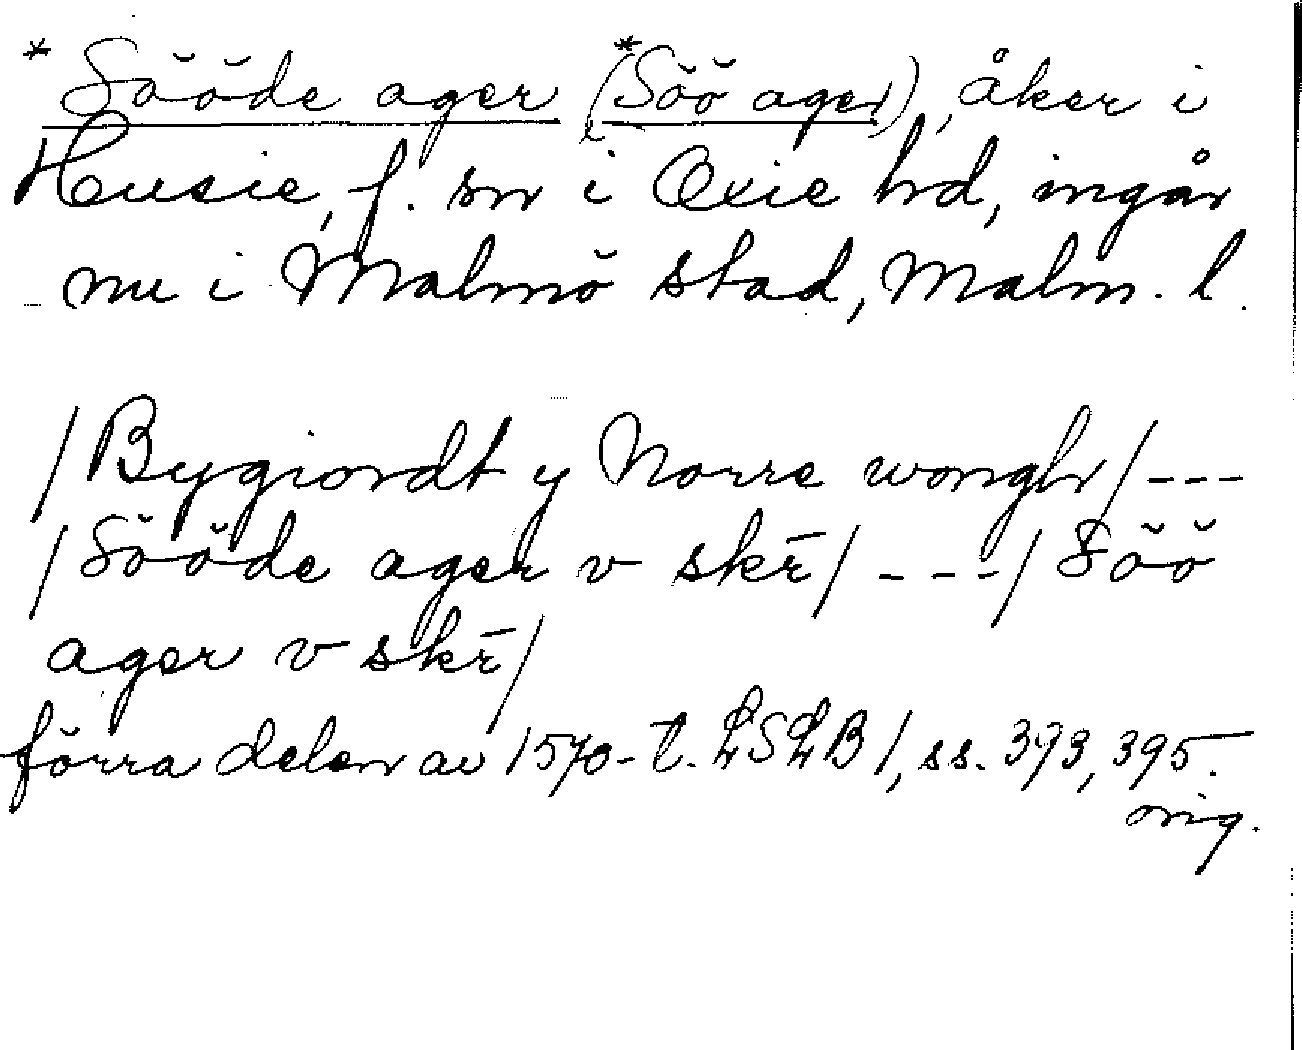 * Sööde ager (*Söö ager), åker i
Husie, f. sn i Oxie hd, ingår
nu i Malmö stad, Malm. l.
/Bygiordt y Norre wongh/ ---
/Sööde ager v skē/ ---/ Söö
ager v skē/
förra delen av 1570-t. LSLB 1, ss. 393, 395.
orig.